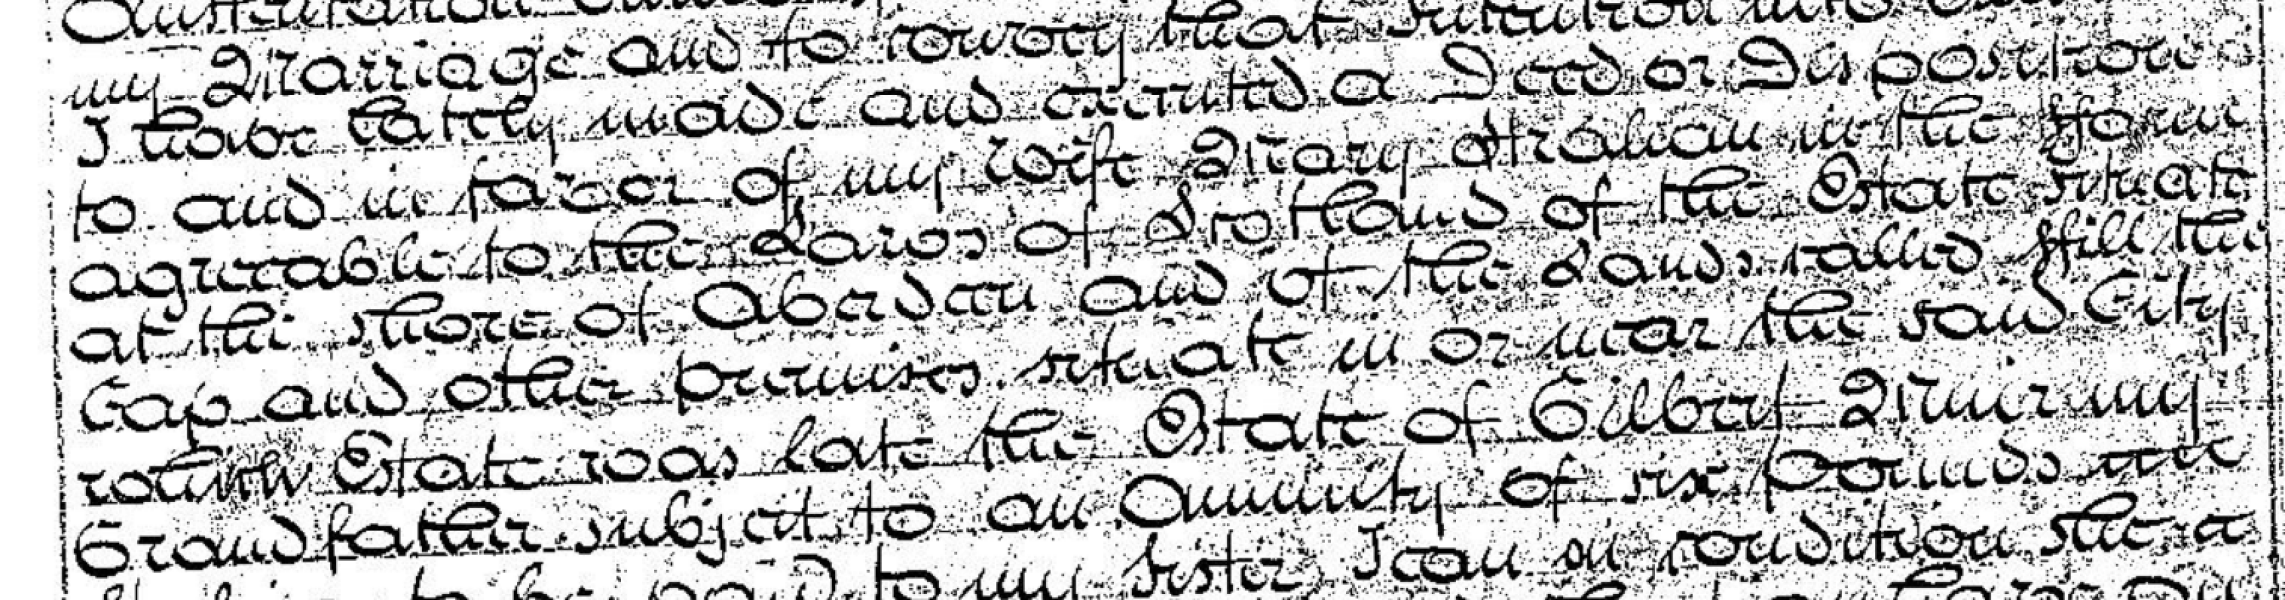 my Marriage and to convey that Intention into
I have lately made and executed a Deed or Disposition
to and in favor of my wife Mary Strahan in the fform
agreeable to the Laws of Scotland of the Estate situate
at the shore of Aberdeen and of the Lands called ffill the
Cap and other premises situate in or near the said City
which Estate was late the Estate of Gilbert Muir my
Grandfather subject to an Annuity of six pounds
to be paid to my Sister Jean on condition she